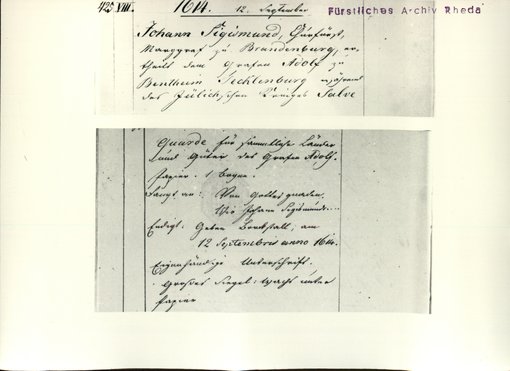 425 VIII. 1614. 12. September
Fürstliches Archiv Rheda
Johann Sigismund, Churfürst,
Marggraf zu Brandenburg, er-
theilt dem Grafen Adolf zu
Bentheim Tecklenburg während
des Jülichschen Krieges Salve
Guarde für sämmtliche Länder
und Güter des Grafen Adolf.
Papier. 1 Bogen.
Fängt an: Von Gottes gnaden,
Wir Johann Sigismundt....
Endigt: Geben am
12 Septembris anno 1614.
Eigenhändige Unterschrift.
Großes Siegel: Wachs unter
Papier